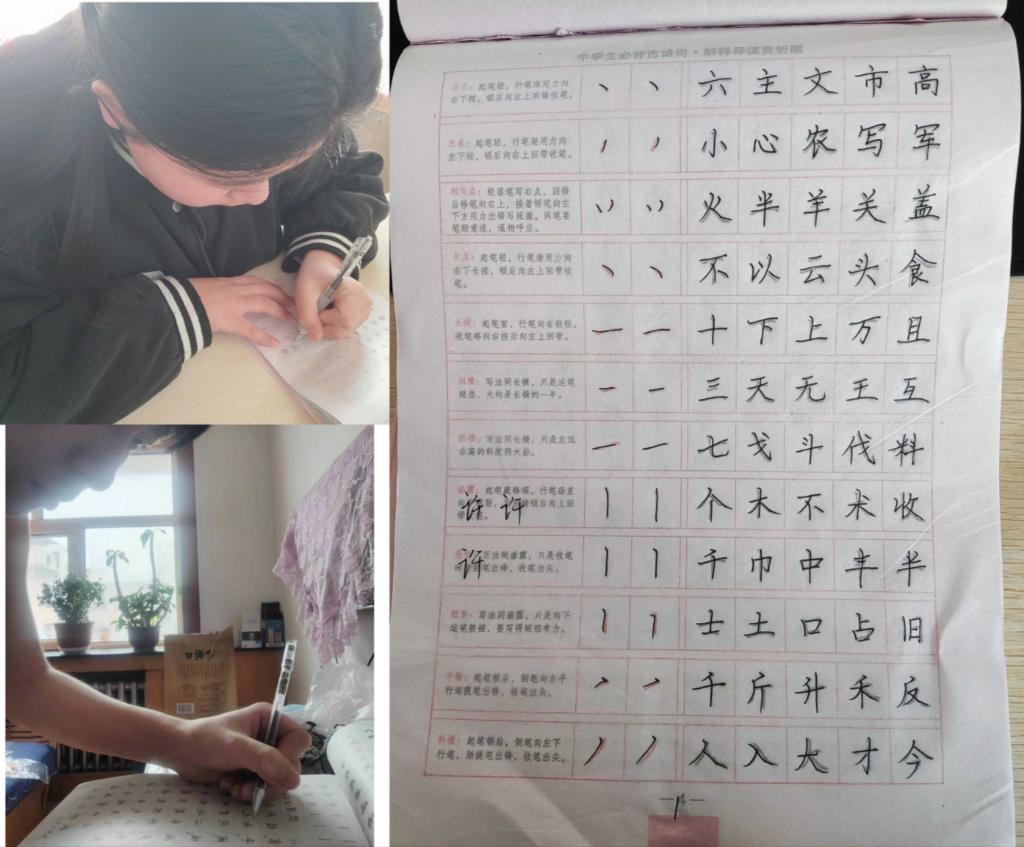 中学生必背古诗词·解释导读赏析版
右点：起笔轻，行笔渐用力向右下按，顿后向左上回锋收笔。
六 主 文 市 高
左点：起笔轻，行笔渐用力向左下按，顿后向右上回带收笔。
小 心 农 写 军
相向点：轻落笔写右点，回锋后移笔向右上，接着顿笔向左下方用力出锋写短撇。两笔要笔断意连，遥相呼应。
火 半 羊 关 盖
长点：起笔轻，行笔渐用力向右下长按，顿后向左上回带收笔。
不 以 云 头 食
长横：起笔重，行笔向右较轻，收笔略向右按后向左上回带。
十 下 上 万 且
短横：写法同长横，只是运笔稍短，大约是长横的一半。
三 天 无 王 互
斜横：写法同长横，只是左低右高的斜度稍大些。
七 戈 斗 伐 料
许 许
个 木 不 术 收
许
写法同垂露，只是收笔出锋，收笔出尖。
千 巾 中 丰 半
短竖：写法同垂露，只是向下运笔较短，要写得短粗有力。
士 土 口 占 旧
平撇：起笔顿后，侧笔向左平行渐提笔出锋，收笔出尖。
千 斤 升 禾 反
斜撇：起笔顿后，侧笔向左下行笔，渐提笔出锋，收笔出尖。
人 入 大 才 今